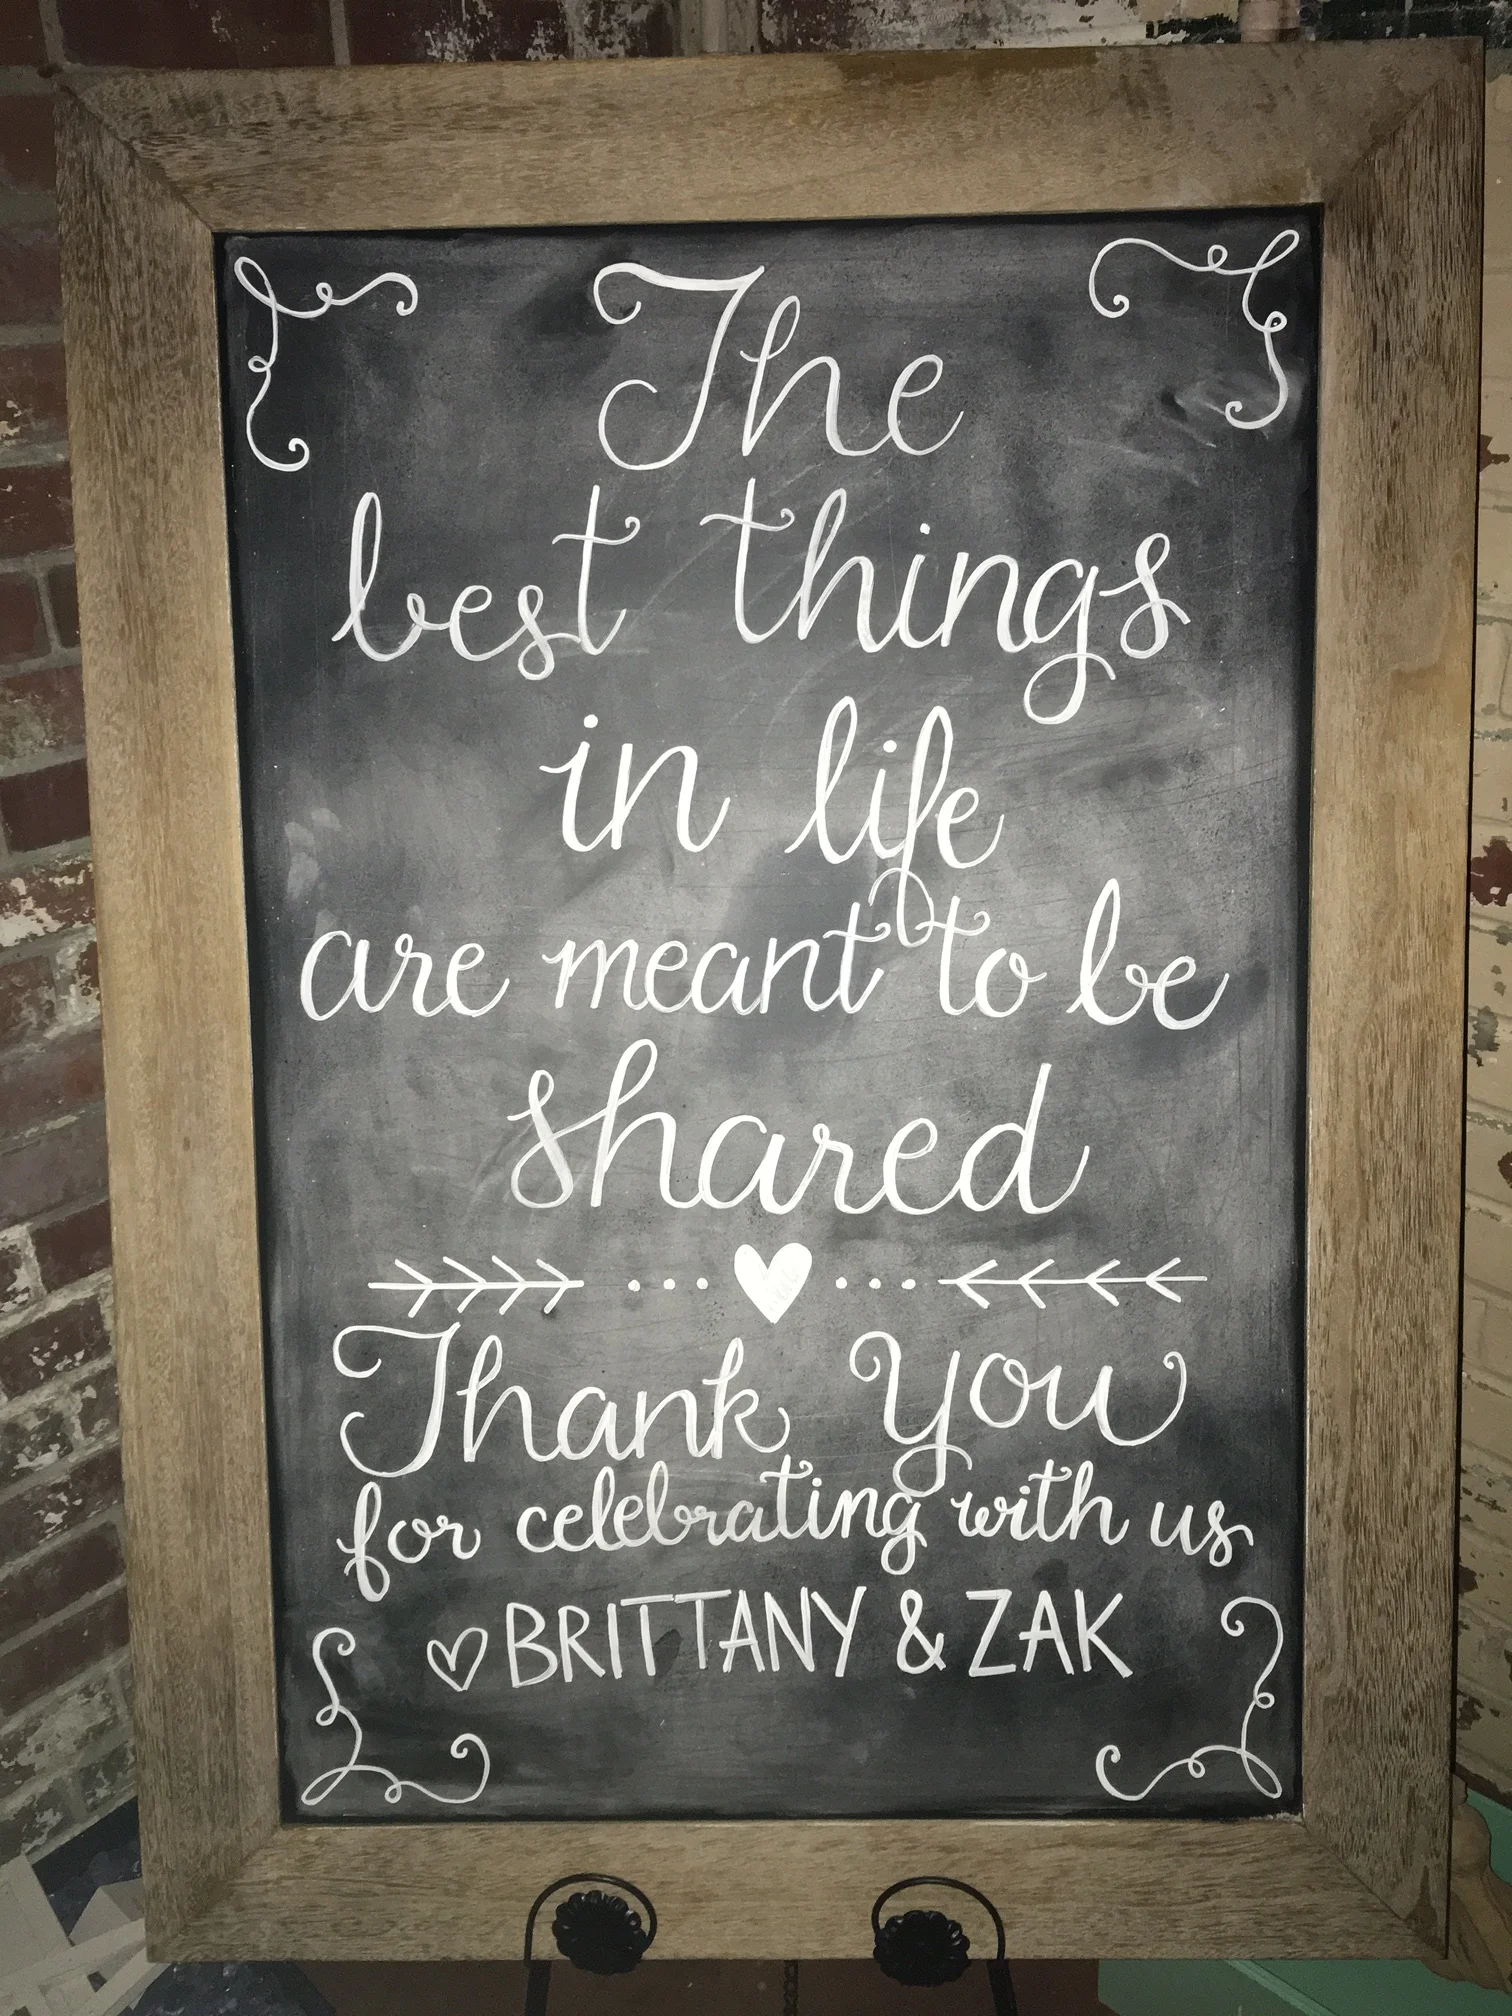 The
best things
in life
are meant to be
shared
Thank you
for celebrating with us
BRITTANY & ZAK